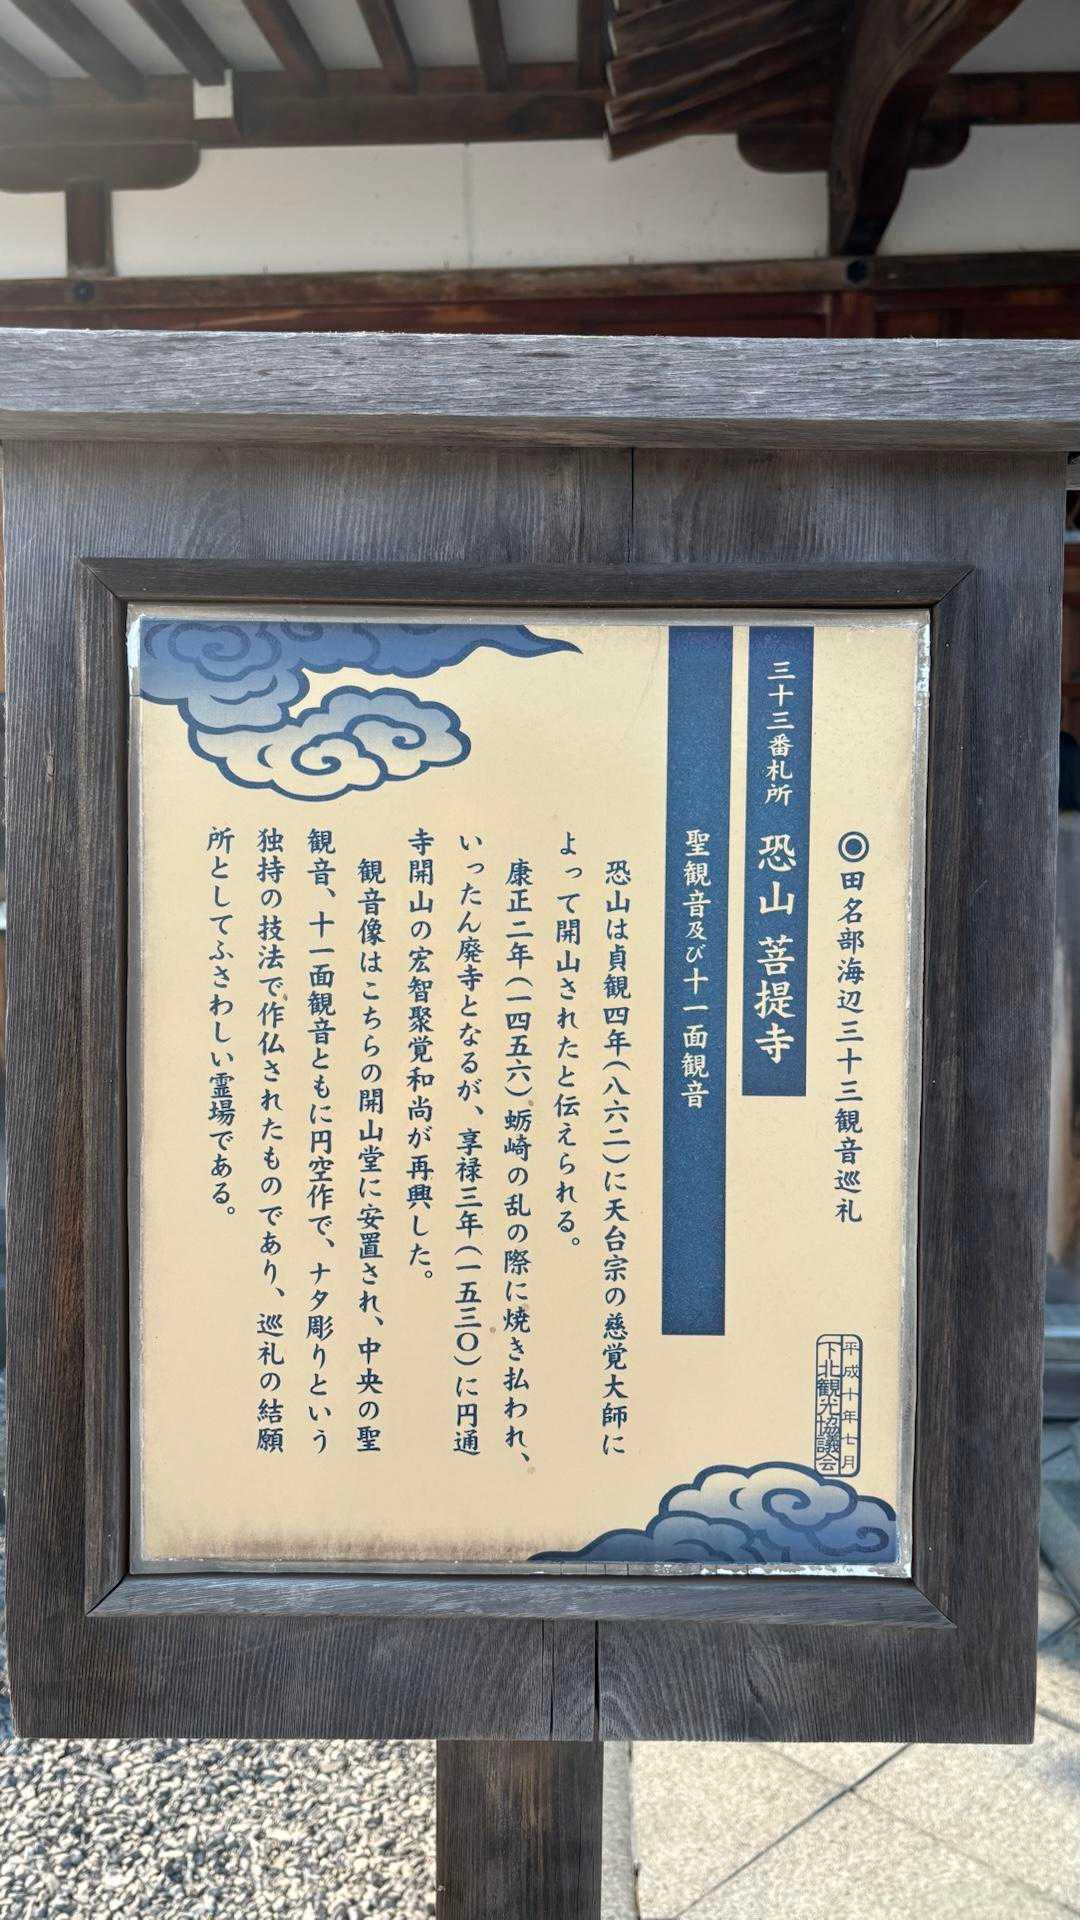 ◎田名部海辺三十三観音巡礼
平成十年七月
下北観光協議会
三十三番札所 恐山 菩提寺
聖観音及び十一面観音
恐山は貞観四年(八六二)に天台宗の慈覚大師に
よって開山されたと伝えられる。
康正二年(一四五六)蛎崎の乱の際に焼き払われ、
いったん廃寺となるが、享禄三年(一五三〇)に円通
寺開山の宏智聚覚和尚が再興した。
観音像はこちらの開山堂に安置され、中央の聖
観音、十一面観音ともに円空作で、ナタ彫りという
独持の技法で作仏されたものであり、巡礼の結願
所としてふさわしい霊場である。